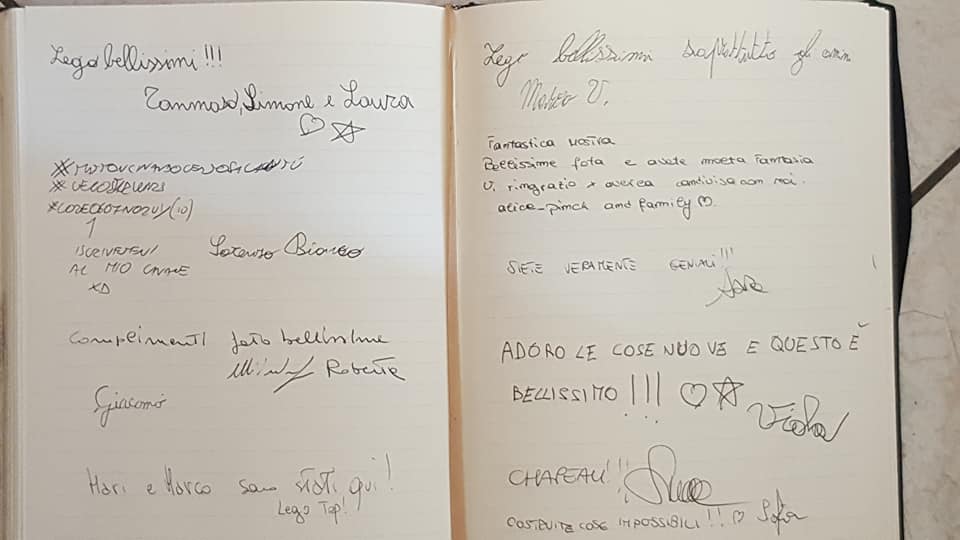 Lego bellissimi!!!
Tommaso, Simone e Laura
ISCRIVETEVI
AL MIO CANALE
XD
Lorenzo Bianco
Complimenti foto bellissime
Roberta
Giacomo
Mari e Marco sono stati qui!
Lego Top!
Lego bellissimi soprattutto gli omini
Matteo V.
Fantastica mostra
Bellissime foto e avete molta fantasia
Vi ringrazio x averla condivisa con noi.
alice_pinch and family ♡.
SIETE VERAMENTE GENIALI!!!
Sara
ADORO LE COSE NUOVE E QUESTO È
BELLISSIMO!!! ♡☆
Viola
CHAPEAU!!!
COSTRUITE COSE IMPOSSIBILI!! ♡ Sofia